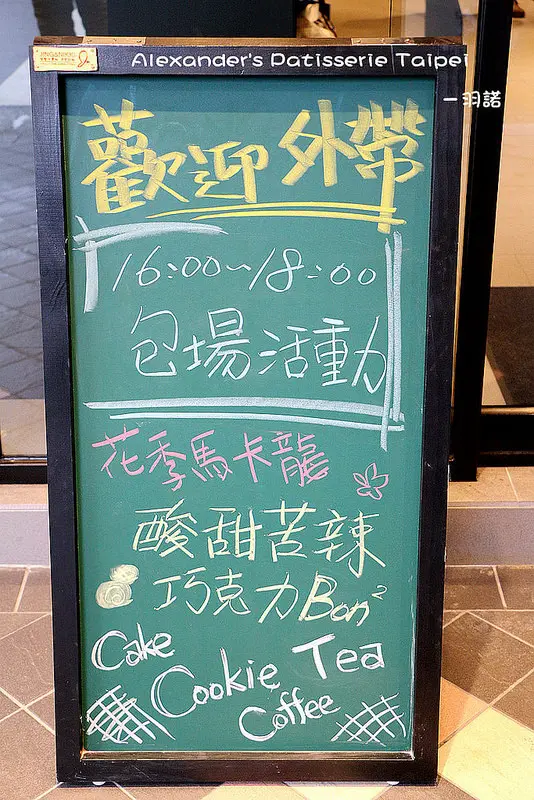 Alexander's Patisserie Taipei
一羽諾
歡迎外帶
16:00~18:00
包場活動
花季馬卡龍
酸甜苦辣
巧克力Bon²
Cake
Cookie Tea
Coffee